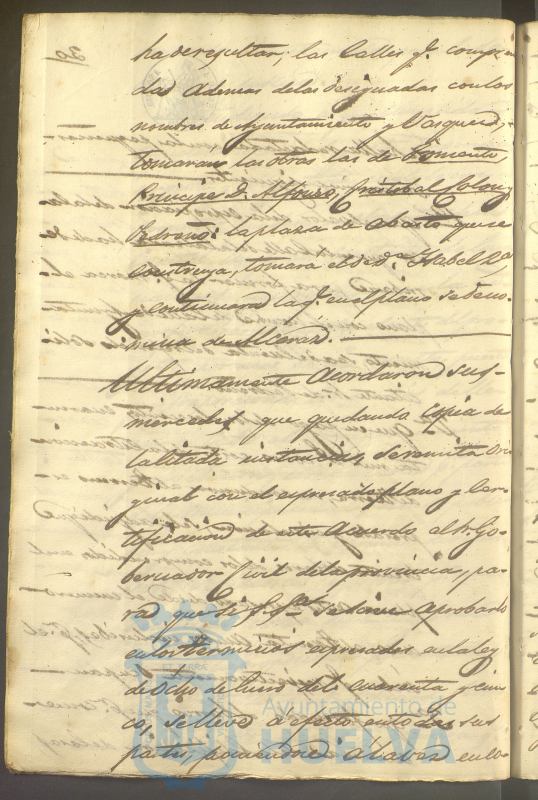 ha de resultar; las Calles q.e compren
das ademas delas designadas con los
nombres de Ayuntamiento y Vasquez,
tomarán las otras las de Fomento,
Principe D. Alfonso, Cristobal Colon y
la plaza de abasto que se
construya, tomará el de d.ª Isabel 2.ª
y continuará la q.e en el plano se deno-
mina de Alcaraz.
Ultimamente acordaron sus
mercedes, que quedando copia de
la citada instancia, se remita ori
ginal con el espresado plano y Cer-
tificacion de este Acuerdo al Sr. Go-
bernador Civil dela provincia, pa-
ra que si S. S.ª se sirve aprobarlo
en los terminos espresados en la ley
de Ocho de Enero de la cuarenta y cin
co, se lleve a efecto en todas sus
partes, poniendose a la vez en lo-
30
Ayuntamiento de
HUELVA